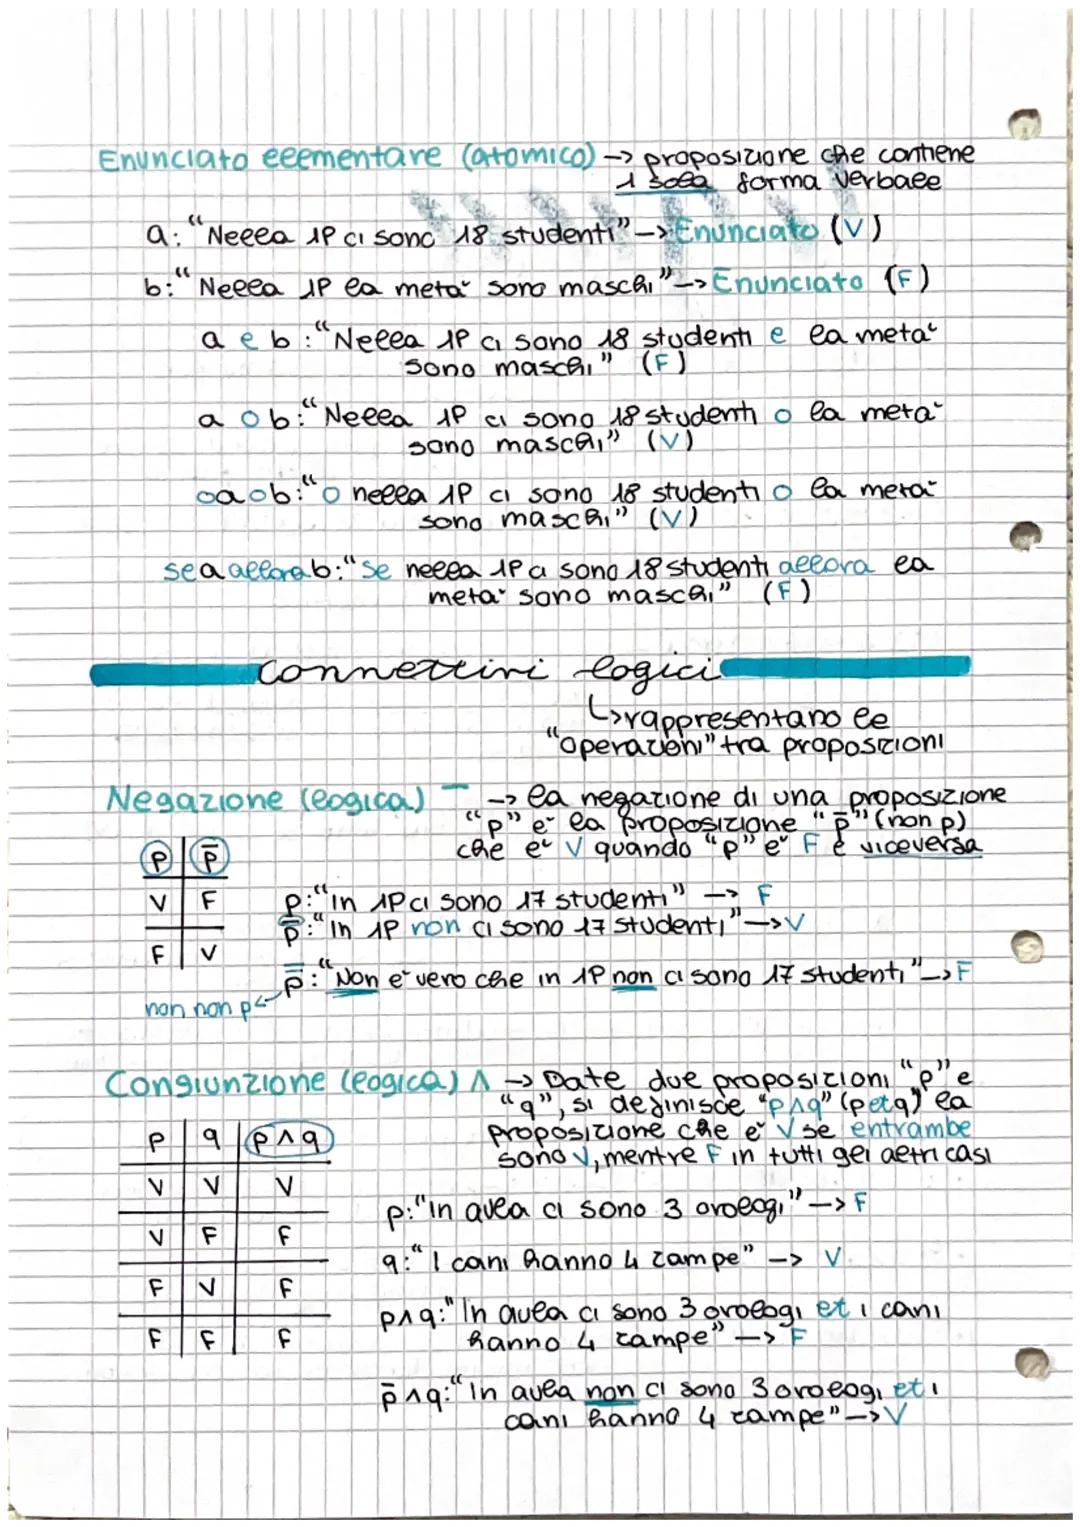 Enunciato elementare (atomico) -> proposizione che contiene
1 sola forma verbale
a: "Nella 1P ci sono 18 studenti" -> Enunciato (V)
b: "Nella 1P la metà sono maschi" -> Enunciato (F)
a e b: "Nella 1P ci sono 18 studenti e la metà
sono maschi" (F)
a o b: "Nella 1P ci sono 18 studenti o la metà
sono maschi" (V)
o a o b: "o nella 1P ci sono 18 studenti o la metà
sono maschi" (V)
se a allora b: "Se nella 1P ci sono 18 studenti allora la
metà sono maschi" (F)
connettivi logici
↳ rappresentano le
"operazioni" tra proposizioni
Negazione (logica) ‾ -> la negazione di una proposizione
"p" è la proposizione "p̅" (non p)
che è V quando "p" è F e viceversa
p | p̅
V | F
F | V
p: "In 1P ci sono 17 studenti" -> F
p̅: "In 1P non ci sono 17 studenti" -> V
p̿: "Non è vero che in 1P non ci sono 17 studenti" -> F
non non p
Congiunzione (logica) ∧ -> Date due proposizioni "p" e
"q", si definisce "p∧q" (p et q) la
proposizione che è V se entrambe
sono V, mentre F in tutti gli altri casi
p | q | p∧q
V | V | V
V | F | F
F | V | F
F | F | F
p: "In aula ci sono 3 orologi" -> F
q: "I cani hanno 4 zampe" -> V
p∧q: "In aula ci sono 3 orologi et i cani
hanno 4 zampe" -> F
p̅∧q: "In aula non ci sono 3 orologi et i
cani hanno 4 zampe" -> V